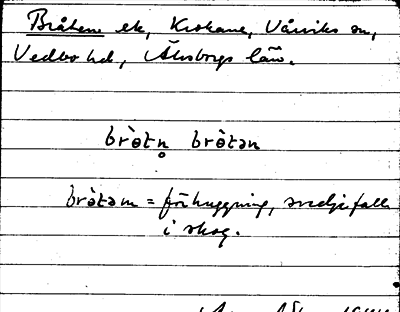 Bråtene ek, Krokane, Vårviks sn,
Vedbo hd, Älvsborgs län.
brɵ̀tn̥ brɵ̀tən
brɵ̀tən = förhuggning, svedjefall
i skog.